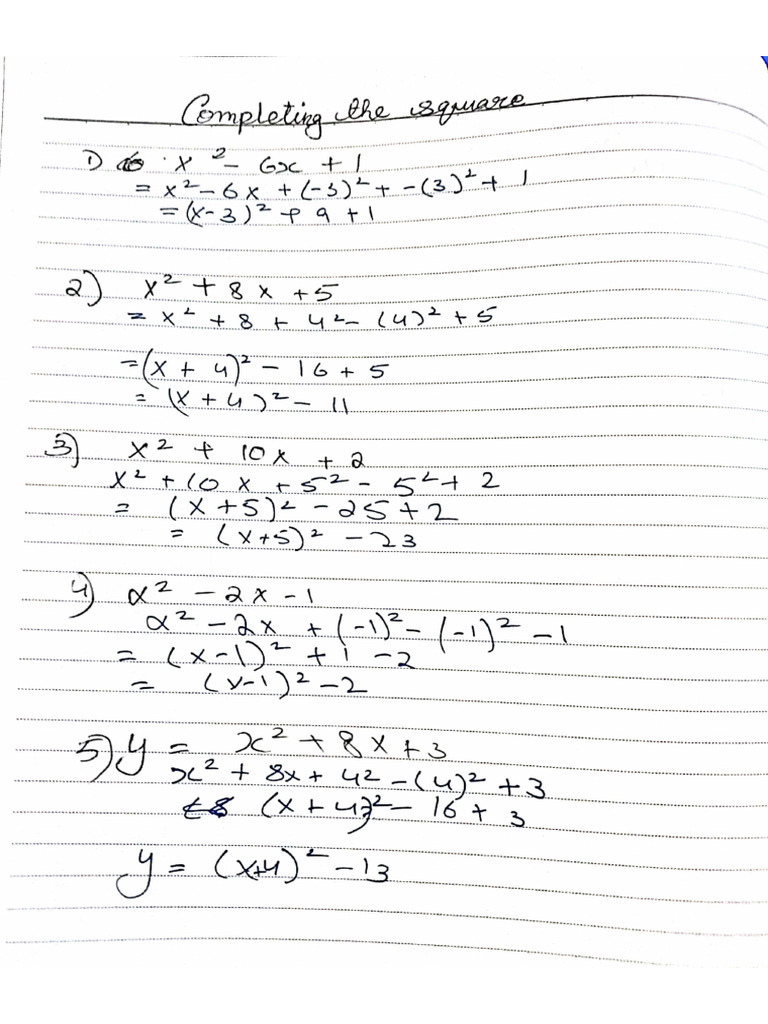 Completing the square
1) x² - 6x + 1
= x² - 6x + (-3)² + -(3)² + 1
= (x-3)² + 9 + 1
2) x² + 8x + 5
= x² + 8 + 4² - (4)² + 5
= (x + 4)² - 16 + 5
= (x + 4)² - 11
3) x² + 10x + 2
x² + 10x + 5² - 5² + 2
= (x+5)² - 25 + 2
= (x+5)² - 23
4) x² - 2x - 1
x² - 2x + (-1)² - (-1)² - 1
= (x-1)² + 1 - 2
= (x-1)² - 2
5) y = x² + 8x + 3
x² + 8x + 42 - (4)² + 3
(x + 4)² - 16 + 3
y = (x+4)² - 13